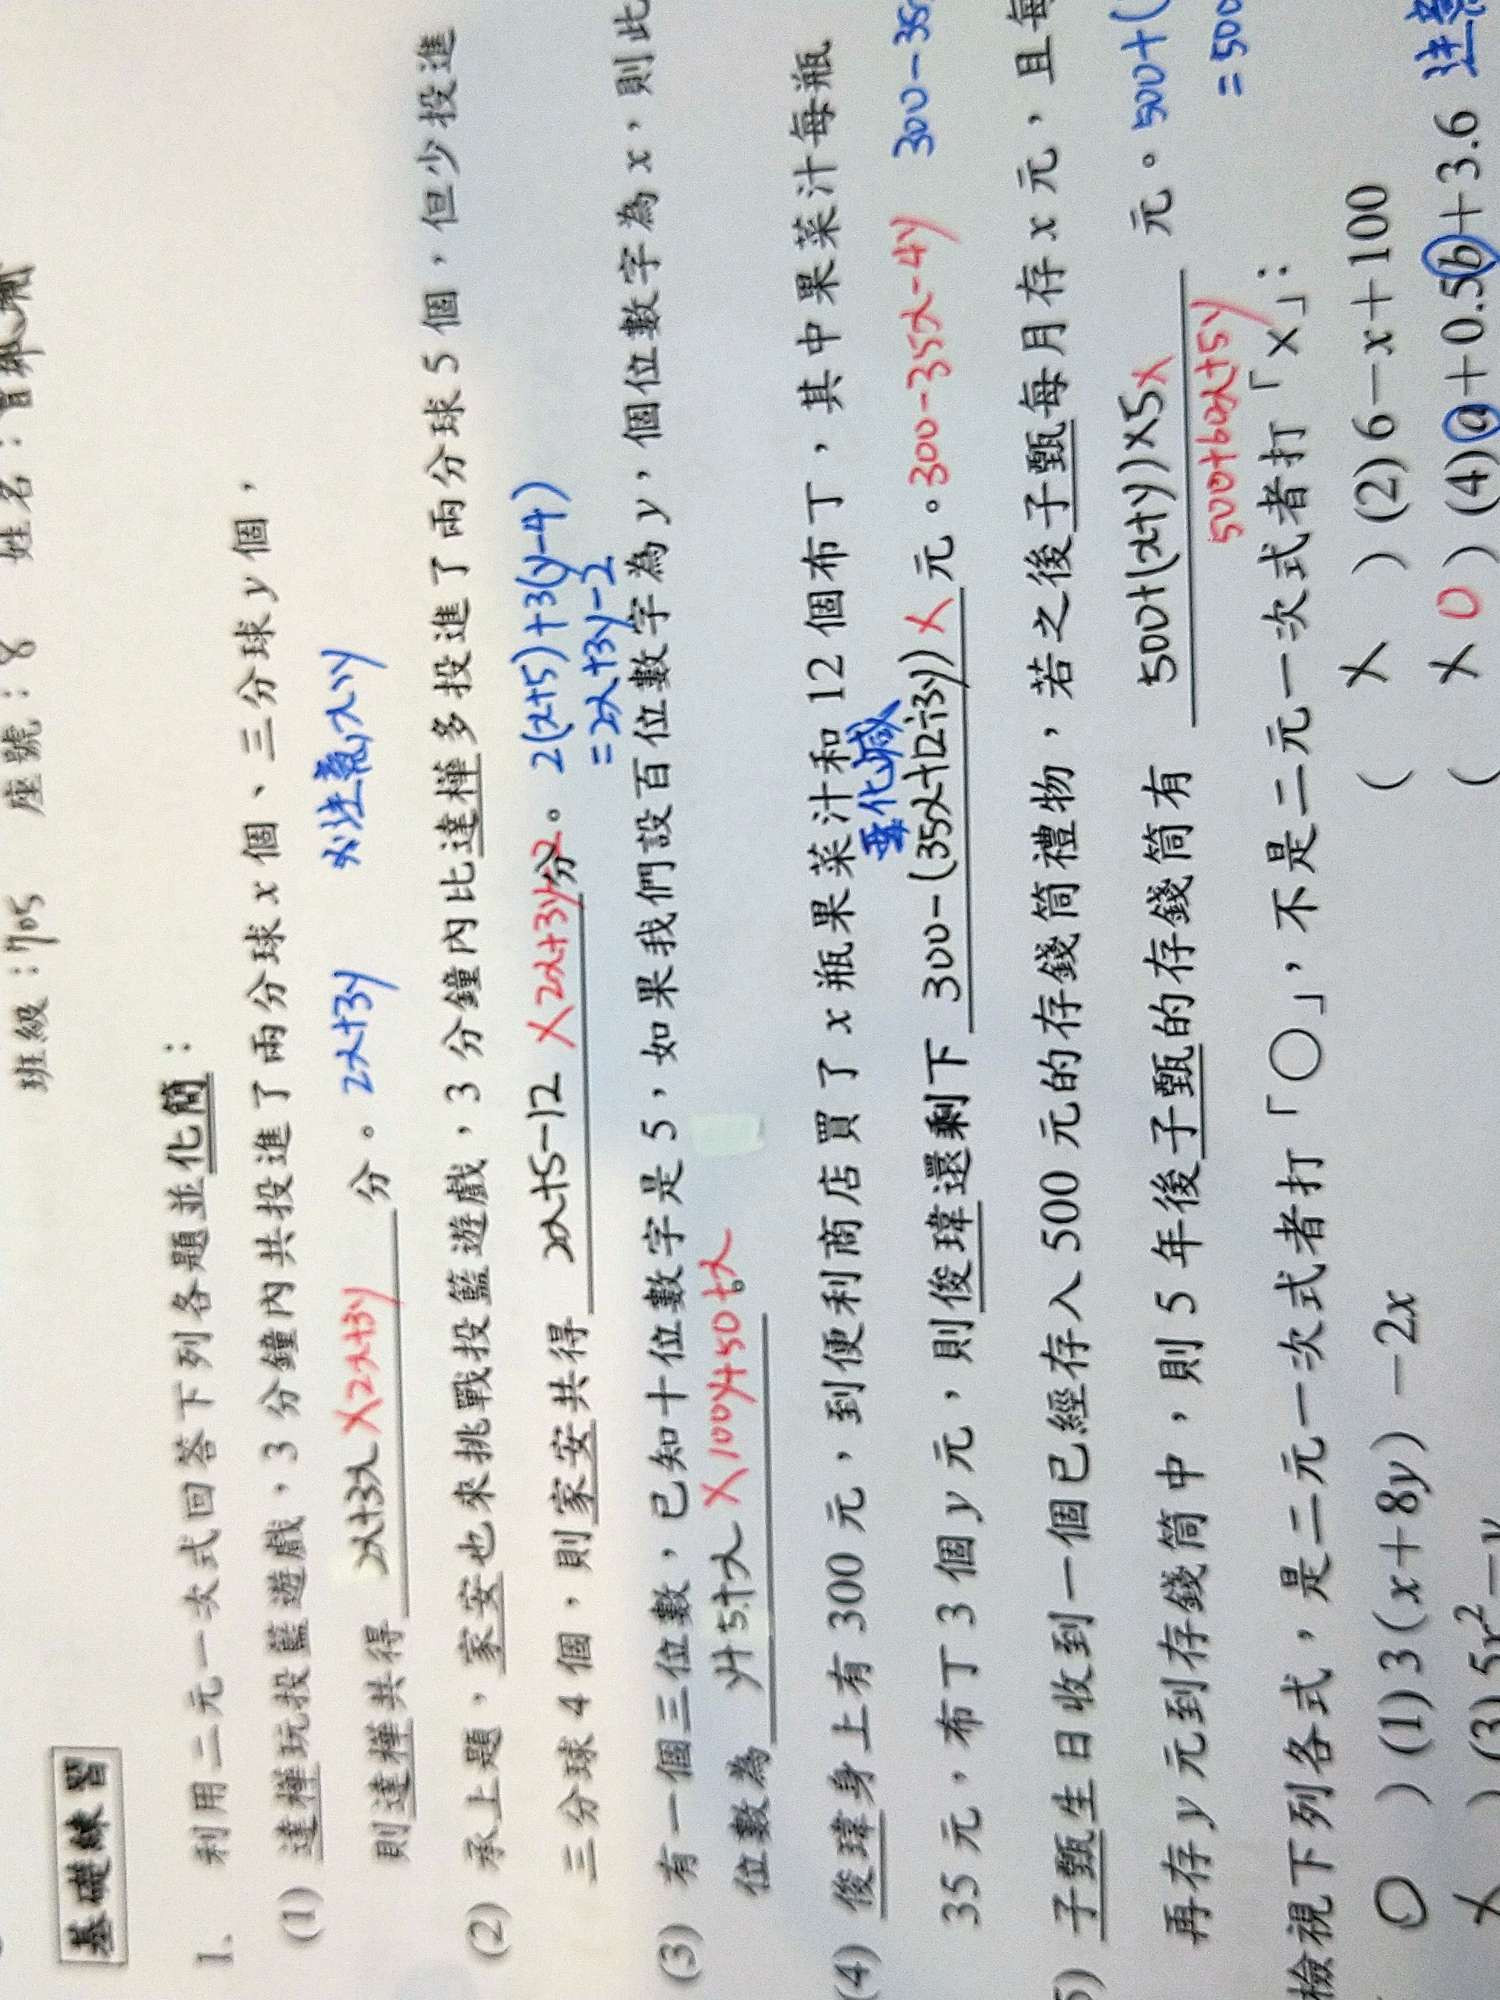 班級：705 座號：8 姓名：
基礎練習
1. 利用二元一次式回答下列各題並化簡：
(1) 達樺玩投籃遊戲，3分鐘內共投進了兩分球x個、三分球y個，
則達樺共得 2x+3x X 2x+3y 分。2x+3y 注意x,y
(2) 承上題，家安也來挑戰投籃遊戲，3分鐘內比達樺多投進了兩分球5個，但少投進
三分球4個，則家安共得 2x+5-12 X 2x+3y-2 分。2(x+5)+3(y-4)
=2x+3y-2
(3) 有一個三位數，已知十位數字是5，如果我們設百位數字為y，個位數字為x，則此
位數為 y+5+x X 100y+50+x 。
(4) 俊瑋身上有300元，到便利商店買了x瓶果菜汁和12個布丁，其中果菜汁每瓶
要化減
35元，布丁3個y元，則俊瑋還剩下 300-(35x+12÷3y) X 元。300-35x-4y 300-35
5) 子甄生日收到一個已經存入500元的存錢筒禮物，若之後子甄每月存x元，且每
再存y元到存錢筒中，則5年後子甄的存錢筒有 500+(x+y)×5 X 元。500+(
500+60x+5y =500
檢視下列各式，是二元一次式者打「〇」，不是二元一次式者打「×」：
O ) (1) 3(x+8y)-2x ( X ) (2) 6-x+100
X ) (3) 5x²-y ( X O ) (4) a+0.5b+3.6 注意